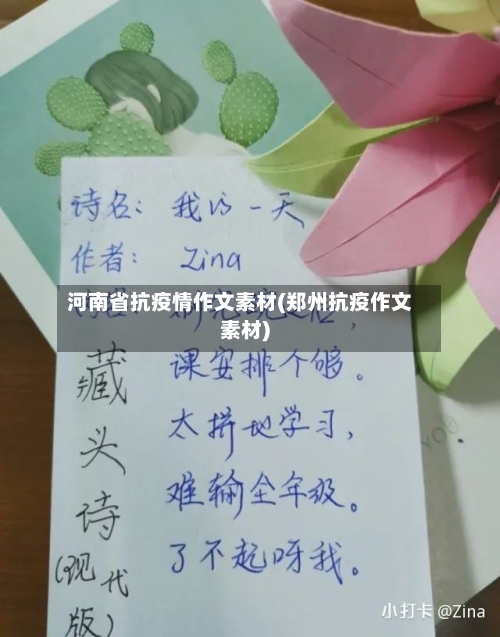 诗名：我的一天
作者：Zina
河南省抗疫情作文素材(郑州抗疫作文
素材)
课安排个够。
太拼地学习，
难输全年级。
了不起呀我。
藏
头
诗
(现代
版)
小打卡 @Zina